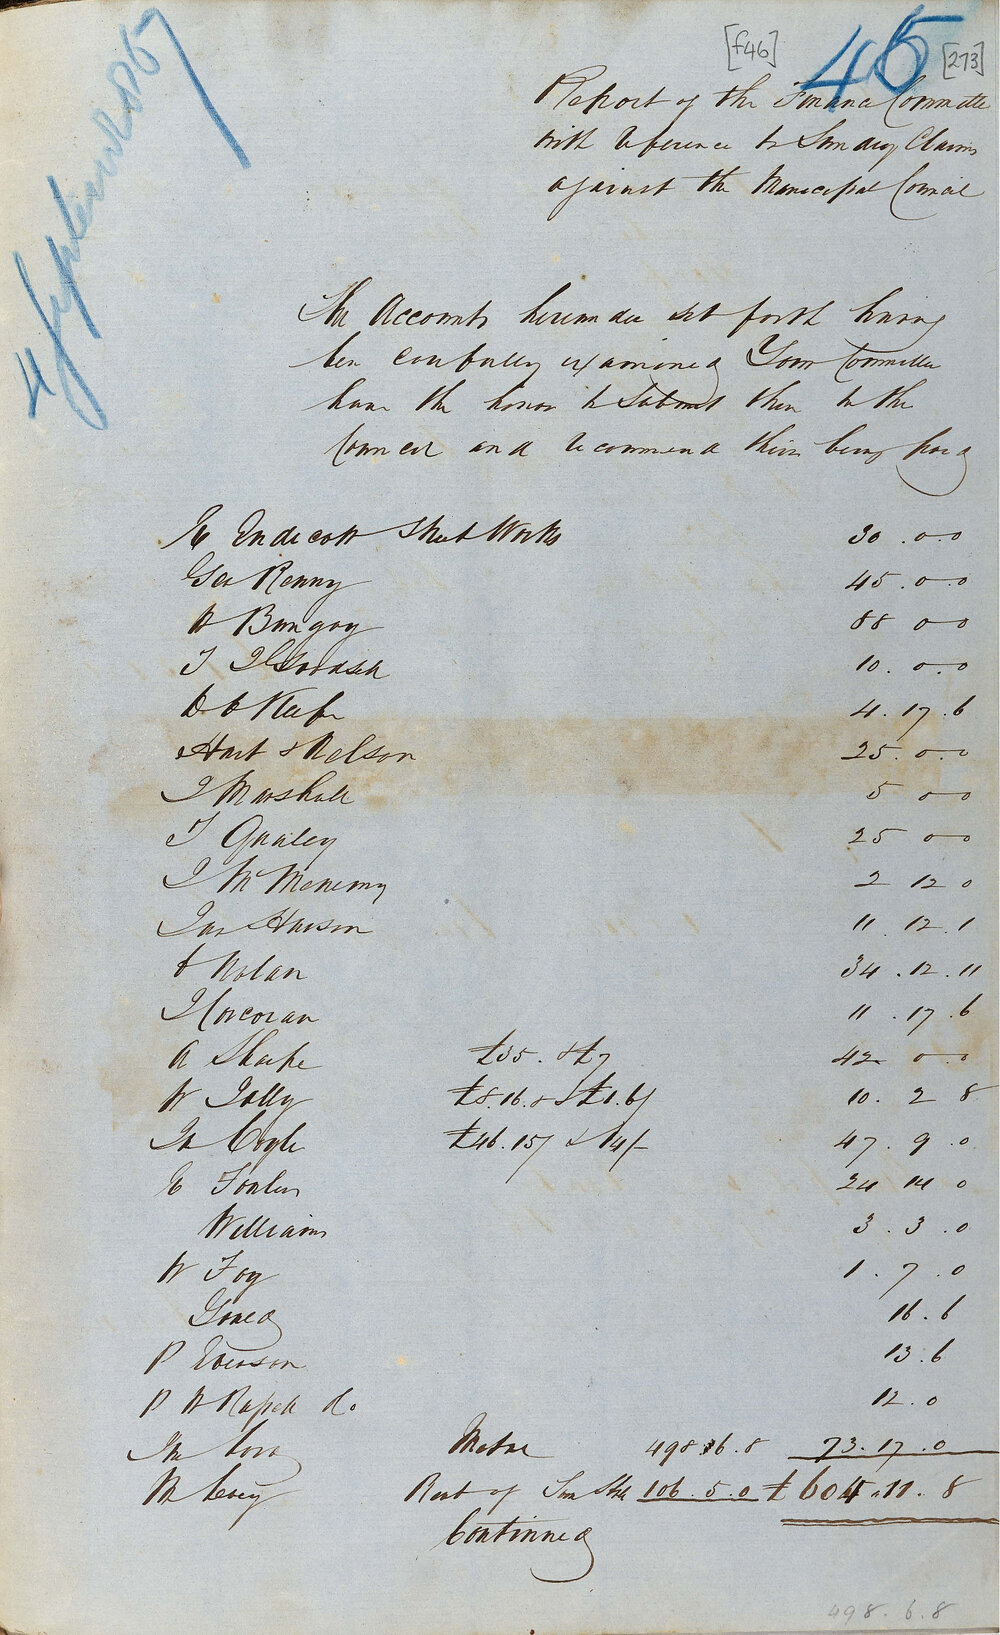 [f46]
45
[273]
4 September 1865
Report of the Finance Committee
with reference to Sundry Claims
against the Municipal Council
The Accounts hereunder set forth having
been carefully examined Your Committee
have the honor to Submit them to the
Council and recommend their being paid
E Endicott Street Works 30.0.0
Geo Renny 45.0.0
W Bungay 88 0 0
T 10.0.0
D O Keefe 4.17.6
Hart & Nelson 25.0.0
J Marshall 5 0 0
T Quailey 25 0 0
J McMenemy 2 12 0
Jas Hanson 11.12.1
Nolan 34.12.11
J Corcoran 11.17.6
A Sharpe £35. & £7 42 0 0
W Jolly £8.16.8 & £1.6/ 10.2 8
Cogle £46.15/ & 14/- 47.9.0
E Fowler 24 14 0
Williams 3.3.0
W Foy 1.7.0
Goned 16.6
P Everson 13.6
P W Do 12.0
Jno Metal 498.6.8 73.17.0
W Rent of 106.5.0 £604.11.8
Continued
498.6.8